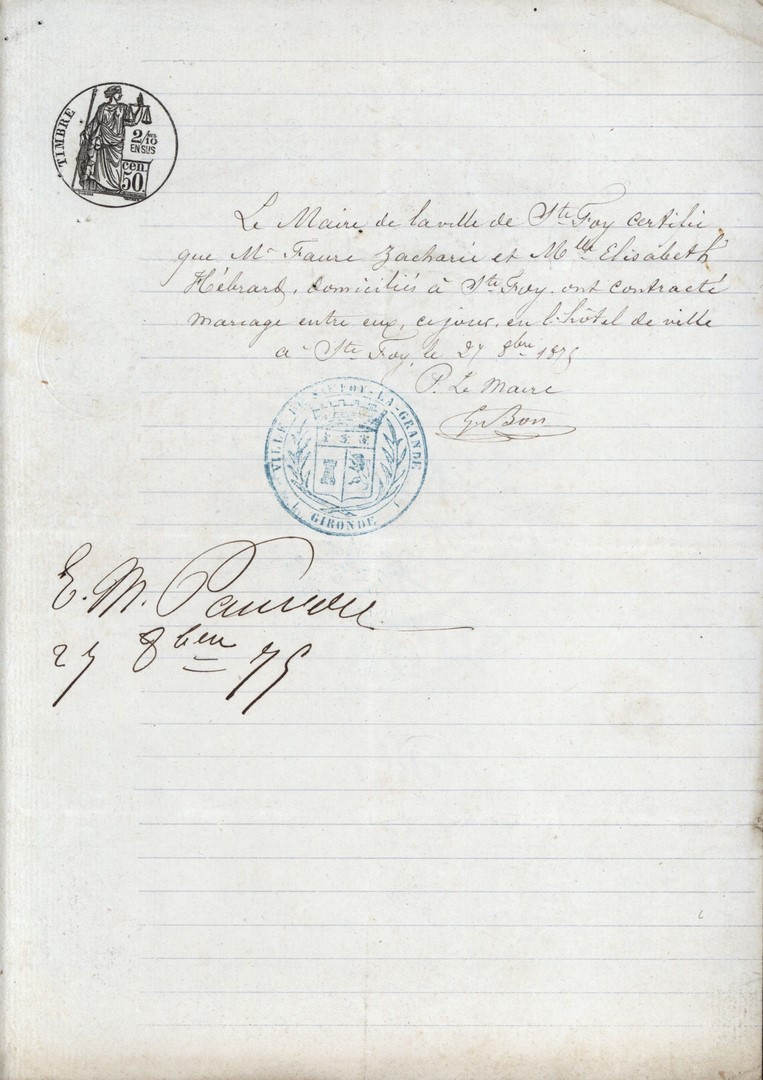 TIMBRE
2/10
EN SUS
cen.
50
Le Maire de la ville de Ste Foy certifie
que Mr Faure Zacharie et Mlle Elisabeth
Hébrard, domiciliés à Ste Foy, ont contracté
mariage entre eux, ce jour, en l'hôtel de ville
à Ste Foy, le 27 8bre 1875
P. Le Maire
VILLE DE STE FOY-LA-GRANDE
GIRONDE
E. M.
27 8bre 75